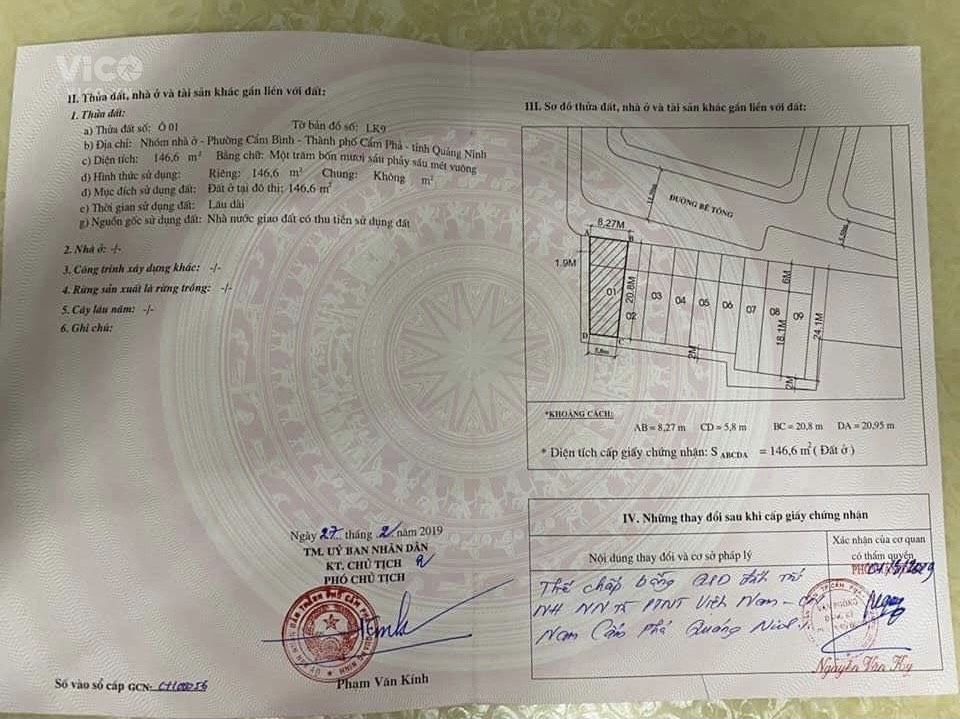 Vico
II. Thửa đất, nhà ở và tài sản khác gắn liền với đất:
1. Thửa đất:
a) Thửa đất số: Ô 01 Tờ bản đồ số: LK9
b) Địa chỉ: Nhóm nhà ở - Phường Cẩm Bình - Thành phố Cẩm Phả - tỉnh Quảng Ninh
c) Diện tích: 146,6 m² Bằng chữ: Một trăm bốn mươi sáu phẩy sáu mét vuông
d) Hình thức sử dụng: Riêng: 146,6 m² Chung: Không m²
đ) Mục đích sử dụng đất: Đất ở tại đô thị: 146,6 m²
e) Thời gian sử dụng đất: Lâu dài
g) Nguồn gốc sử dụng đất: Nhà nước giao đất có thu tiền sử dụng đất
2. Nhà ở: -/-
3. Công trình xây dựng khác: -/-
4. Rừng sản xuất là rừng trồng: -/-
5. Cây lâu năm: -/-
6. Ghi chú:
Ngày 27 tháng 2 năm 2019
TM. UỶ BAN NHÂN DÂN
KT. CHỦ TỊCH
PHÓ CHỦ TỊCH
Phạm Văn Kính
Số vào sổ cấp GCN: CH00056
III. Sơ đồ thửa đất, nhà ở và tài sản khác gắn liền với đất:
ĐƯỜNG BÊ TÔNG
8,27M
A B
1.9M
20.8M
01 02 03 04 05 06 07 08 09
6M
18.1M
24.1M
D C
5,8m
2M
2M
*KHOẢNG CÁCH:
AB = 8,27 m CD = 5,8 m BC = 20,8 m DA = 20,95 m
* Diện tích cấp giấy chứng nhận: S ABCDA = 146,6 m² ( Đất ở )
IV. Những thay đổi sau khi cấp giấy chứng nhận
Nội dung thay đổi và cơ sở pháp lý
Xác nhận của cơ quan
có thẩm quyền
Thế chấp bằng QSD đất tại
NH NN & PTNT Việt Nam - CN
Nam Cẩm Phả Quảng Ninh
VĂN PHÒNG
ĐĂNG KÝ
Nguyễn Văn Hy